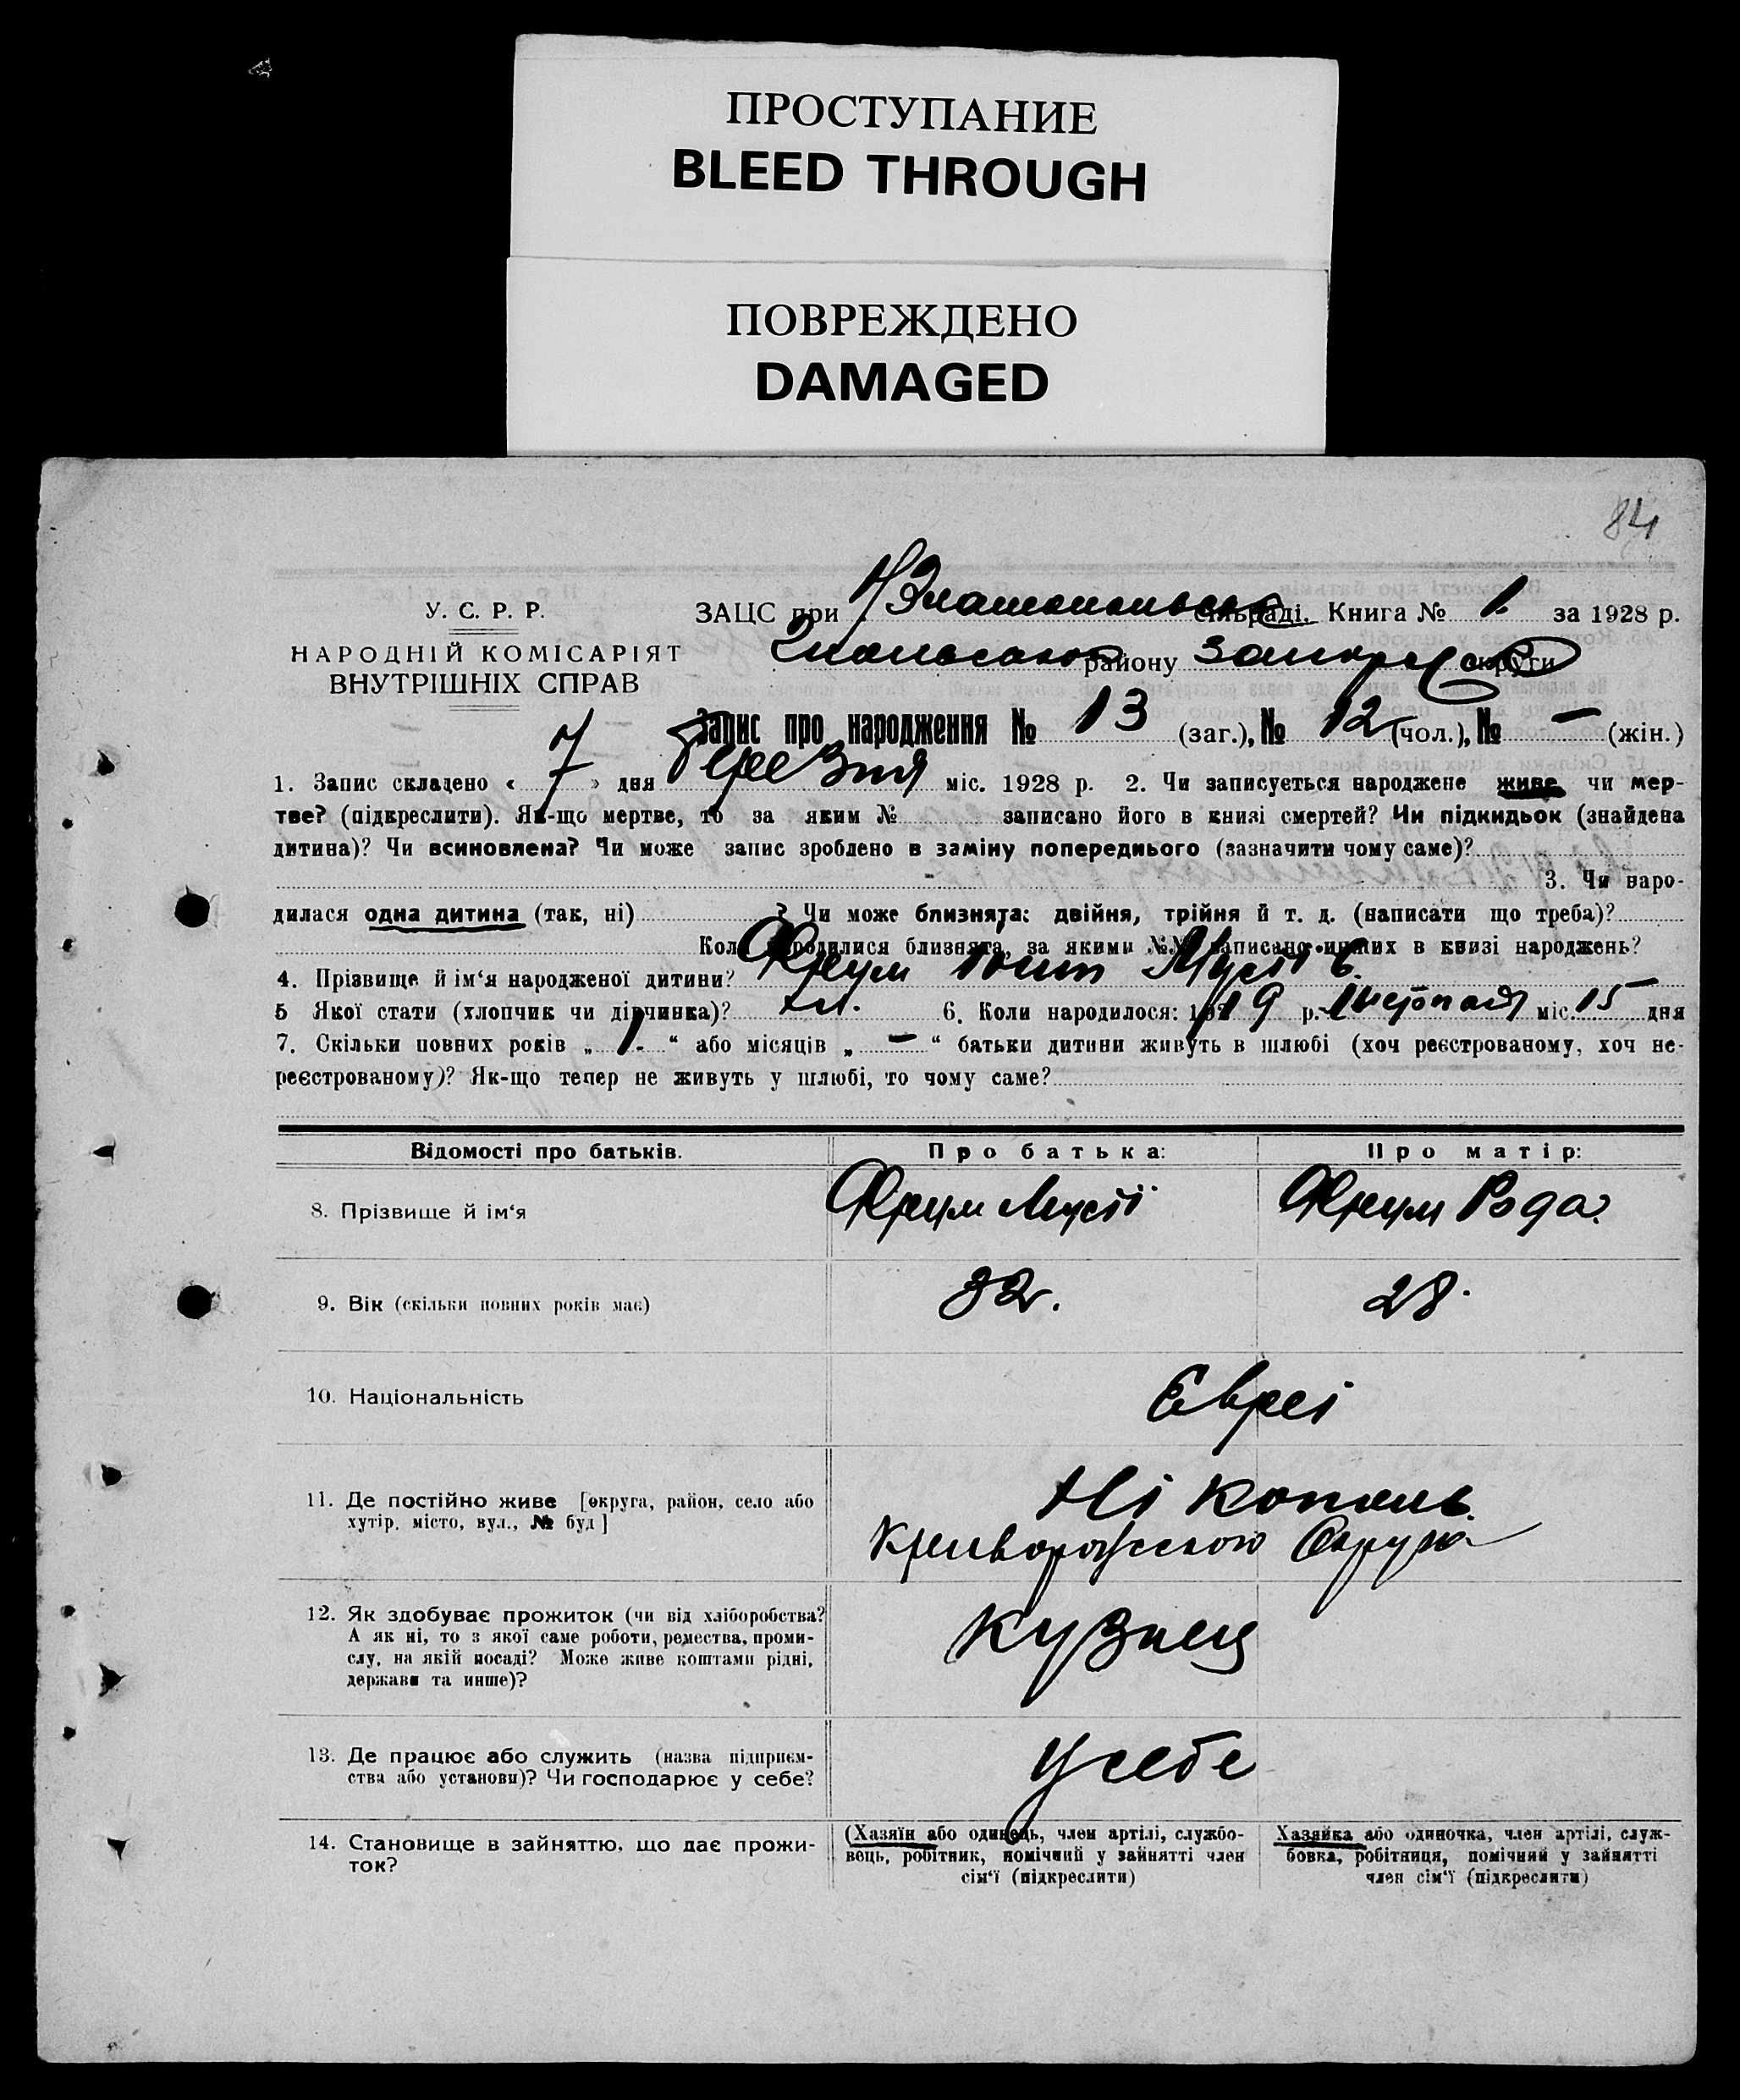 ПРОСТУПАНИЕ
BLEED THROUGH
ПОВРЕЖДЕНО
DAMAGED
84
У. С. Р. Р.
ЗАЦС при сільраді. Книга № 1. за 1928 р.
НАРОДНІЙ КОМІСАРІЯТ
району округи
ВНУТРІШНІХ СПРАВ
Запис про народження № 13 (заг.), № 12 (чол.), № — (жін.)
1. Запис складено « 7 » дня Березня міс. 1928 р. 2. Чи записується народжене живе чи мер-
тве? (підкреслити). Як-що мертве, то за яким № записано його в книзі смертей? Чи підкидьок (знайдена
дитина)? Чи всиновлена? Чи може запис зроблено в заміну попереднього (зазначити чому саме)?
3. Чи наро-
дилася одна дитина (так, ні) ? Чи може близнята: двійня, трійня й т. д. (написати що треба)?
Коли народилися близнята, за якими №№ записано инших в книзі народжень?
4. Прізвище й ім‘я народженої дитини?
5 Якої стати (хлопчик чи дівчинка)? хл. 6. Коли народилося: 19 р. Листопад міс. 15 дня
7. Скільки повних років „ 1. “ або місяців „ — “ батьки дитини живуть в шлюбі (хоч реєстрованому, хоч не-
реєстрованому)? Як-що тепер не живуть у шлюбі, то чому саме?
Відомості про батьків.
Про батька:
Про матір:
8. Прізвище й ім‘я
Мусій
Рода.
9. Вік (скільки повних років має)
32.
28.
10. Національність
Євреі
11. Де постійно живе [округа, район, село або
хутір, місто, вул., № буд]
Ні кополь.
Криворожською Округа
12. Як здобуває прожиток (чи від хліборобства?
А як ні, то з якої саме роботи, ремества, проми-
слу, на якій посаді? Може живе коштами рідні,
держави та инше)?
Кузнец
13. Де працює або служить (назва підприєм-
ства або установи)? Чи господарює у себе?
У себе
14. Становище в зайняттю, що дає прожи-
ток?
(Хазяїн або одинець, член артілі, службо-
вець, робітник, помічний у зайнятті член
сім‘ї (підкреслити)
Хазяйка або одиночка, член артілі, служ-
бовка, робітниця, помічний у зайнятті
член сім‘ї (підкреслити)